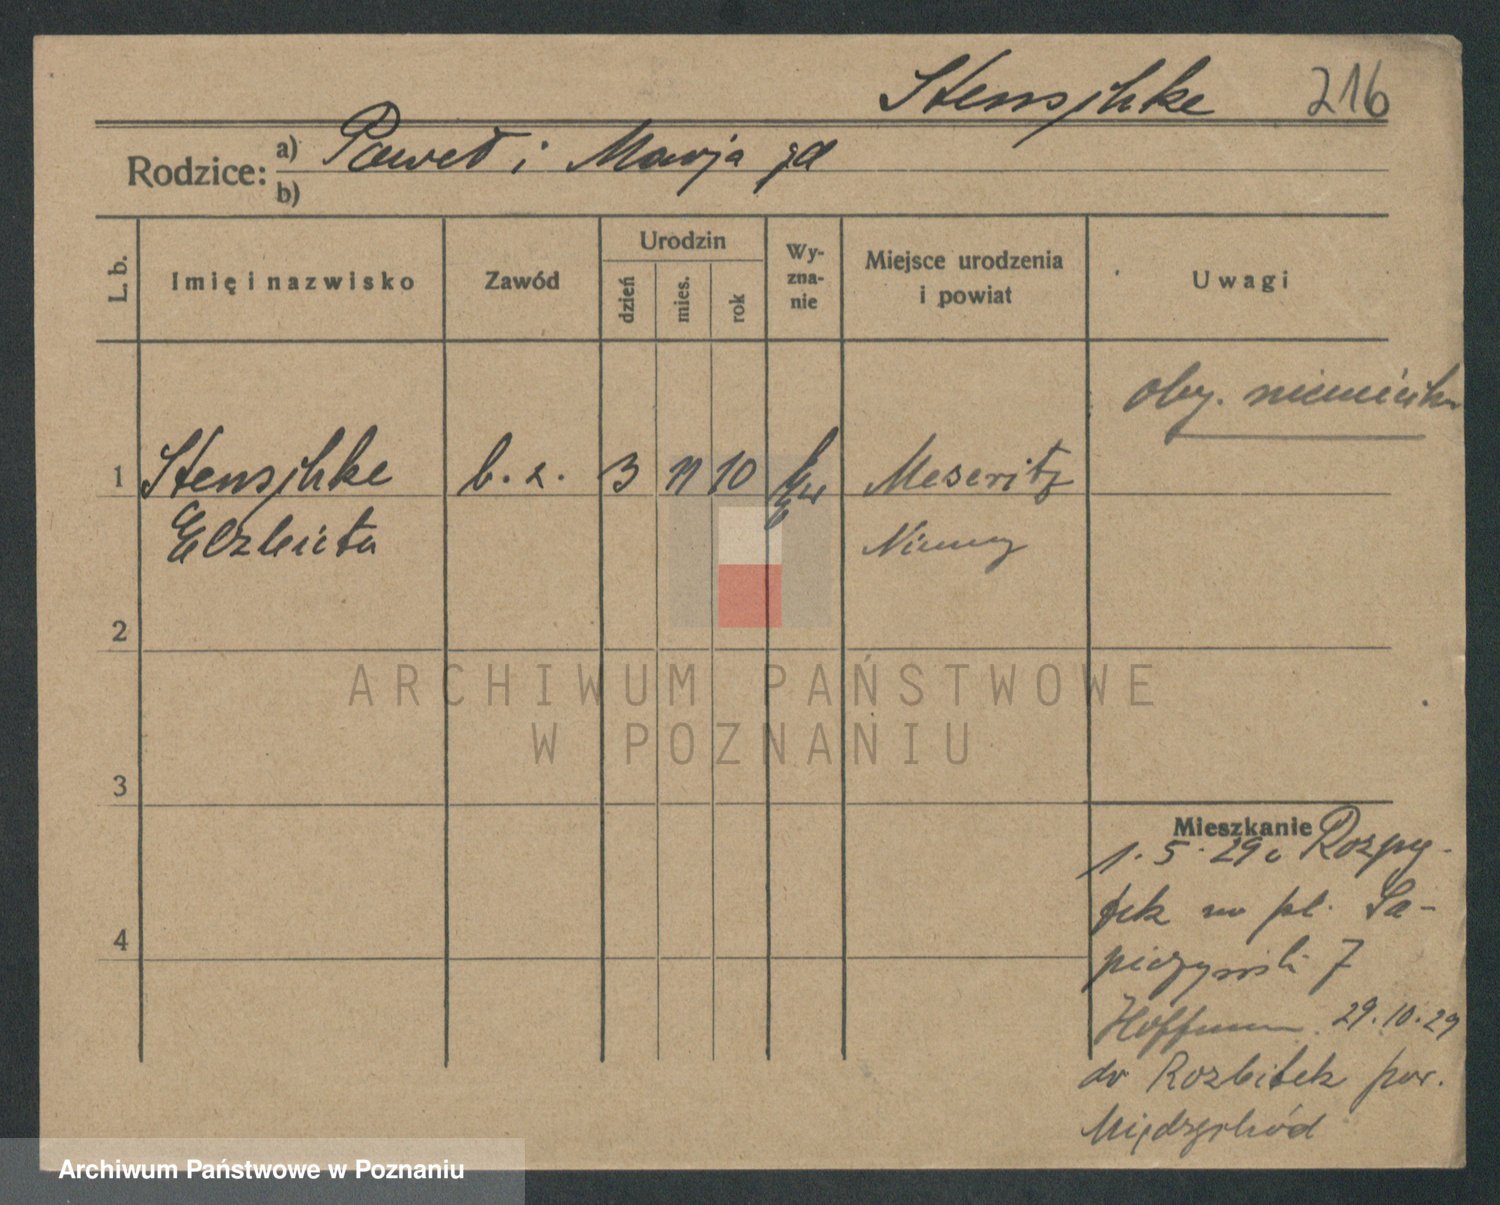 Stenschke 216
Rodzice: a) Paweł i Marja
b)
L. b.
Imię i nazwisko
Zawód
Urodzin
dzień
mies.
rok
Wy-
zna-
nie
Miejsce urodzenia
i powiat
Uwagi
oby. niemiecka
1 Stenschke b. z. 3 11 10 Ew Meseritz
Elzbieta Niemcy
2
3
4
Mieszkanie
1. 5. 29 z Rozpy-
tek na pl. Sa-
pieżyński 7
Hoffmann 29. 10. 29
do Rozbitek pow.
Międzychód
ARCHIWUM PAŃSTWOWE
W POZNANIU
Archiwum Państwowe w Poznaniu